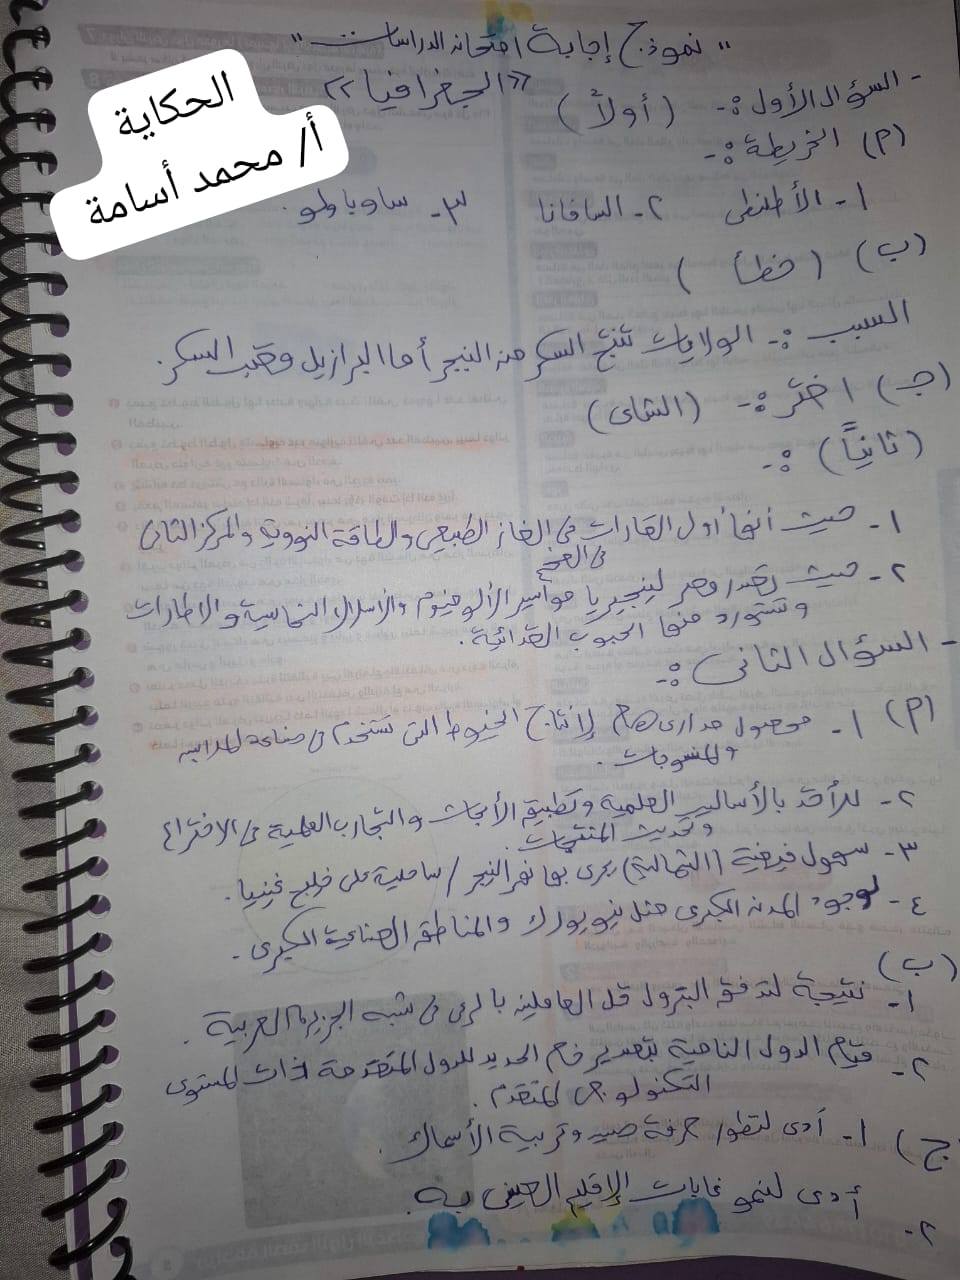 " نموذج إجابة امتحان الدراسات "
« الجغرافيا »
الحكاية
أ/ محمد أسامة
- السؤال الأول :- (أولاً)
(أ) الخريطة :-
١- الأطلنطى ٢- السافانا ٣- ساوباولو .
(ب) ( خطأ )
السبب :- الولايات تنتج السكر من البنجر أما البرازيل وقصب السكر .
(جـ) اختر :- (الشاى)
(ثانياً) :-
١- حيث أنها أول القارات فى الغاز الطبيعى والطاقة النووية والمركز الثانى
فى الفحم
٢- حيث تصدر مصر لنيجيريا مواسير الألومنيوم والأسلاك النحاسية والإطارات
وتستورد منها الحبوب الغذائية .
- السؤال الثانى :-
(أ) ١- محصول مدارى هام لإنتاج الخيوط التى تستخدم فى صناعة الملابس
والمنسوجات .
٢- للأخذ بالأساليب العلمية وتطبيق الأبحاث والتجارب العلمية فى الاختراع
وتحديث المنتجات .
٣- سهول فيضية (الشمالية) يجرى بها نهر النيجر / ساحلية على خليج غينيا .
٤- لوجود المدن الكبرى مثل نيويورك والمناطق الصناعية الكبرى .
(ب)
١- نتيجة لتدفق البترول قل العاملين بالرعى فى شبه الجزيرة العربية .
٢- قيام الدول النامية بتصدير خام الحديد للدول المتقدمة ذات المستوى
التكنولوجى المتقدم .
(ج) ١- أدى لتطور حرفة صيد وتربية الأسماك .
٢- أدى لنمو غابات الإقليم الصينى به .